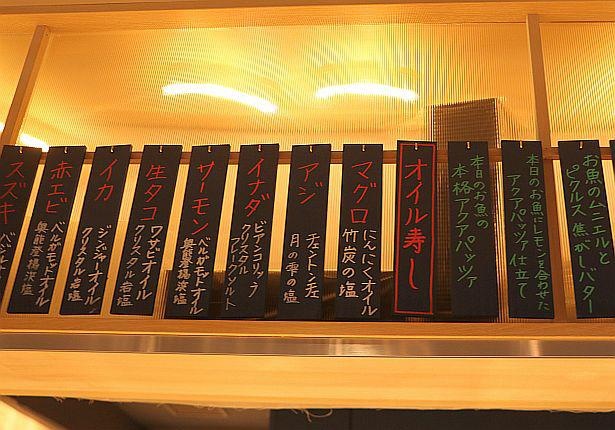 お魚のムニエルと
ピクルス 焦がしバター
本日のお魚にレモンを合わせた
アクアパッツァ仕立て
本日のお魚の
本格アクアパッツァ
オイル寿し
マグロ
にんにくオイル
竹炭の塩
アジ
チェントンチェ
月の雫の塩
イナダ
ビアンコリッラ
クリスタルフレークソルト
サーモン
ベルガモットオイル
奥能登揚浜塩
生タコ
ワサビオイル
クリスタル岩塩
イカ
ジンジャーオイル
クリスタル岩塩
赤エビ
ベルガモットオイル
奥能登揚浜塩
スズキ